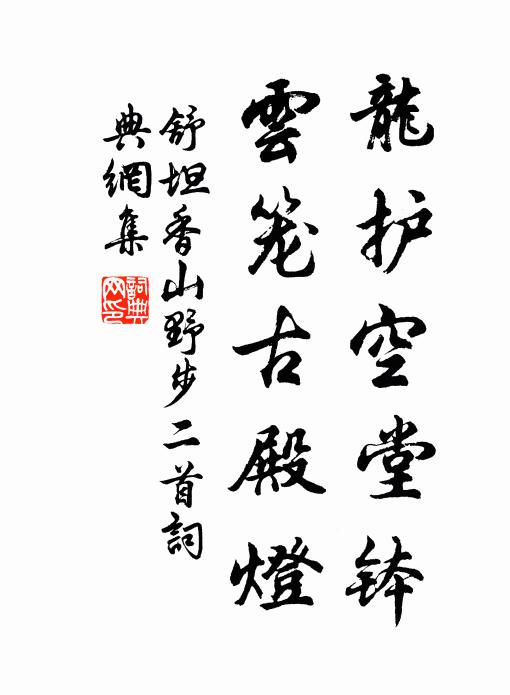 龍护空堂钵
雲笼古殿燈
舒坦香山野步二首詞
典網集
詞典網印